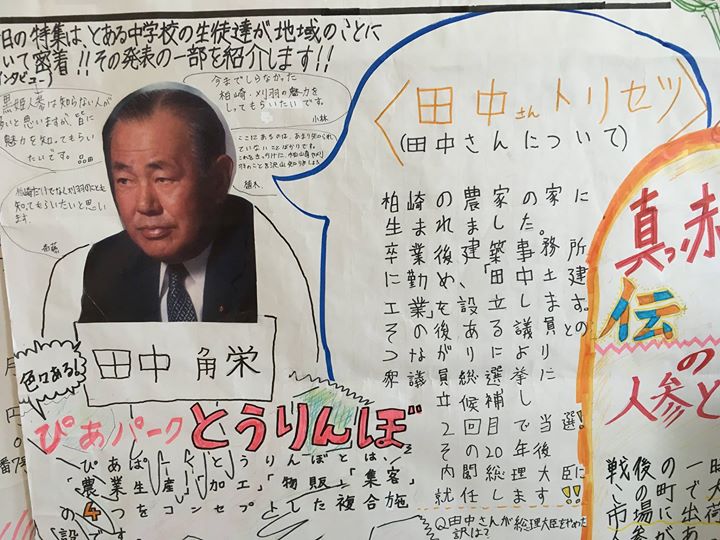 日の特集は、とある中学校の生徒達が地域のことに
いて密着!!その発表の一部を紹介します!!
インタビュー)
黒姫人参は知らない人が
多いと思いますが、皆に
魅力を知ってもらい
たいです。
今までしらなかった
柏崎、刈羽の魅力を
してもらいたいです。
小林
ここにあるのは、あまり知られ
ていないことばかりで、
植木
柏崎だけでなく刈羽のことも
知ってもらいたいと思い
ます。
斎藤
〈田中さんトリセツ〉
(田中さんについて)
柏崎の農家の家に
生まれました。
卒業後建築事務所
に勤め、「田中土建
工業」を設立します。
その後ある議員との
つながりにより
衆議員総選挙に
立候補し
2回目で当選!
その20年後
内閣総理大臣に
就任します!!
Q田中さんが総理大臣をやめた
訳は?
田中角栄
色々ある!
ぴあパークとうりんぼ
ぴあぱーくとうりんぼとは、
「農業生産」「加工」「物販」「集客」
の4つをコンセプトとした複合施
設です。
真っ赤
伝
の
人参と
戦後の一時
この町で大
市場に出荷
人参があ